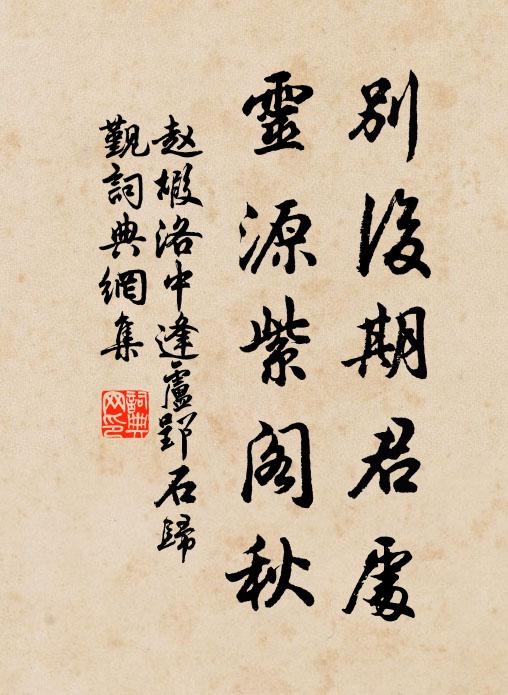 別後期君處
靈源紫閣秋
赵嘏洛中逢盧郢石歸
觐詞典網集
詞典
网印